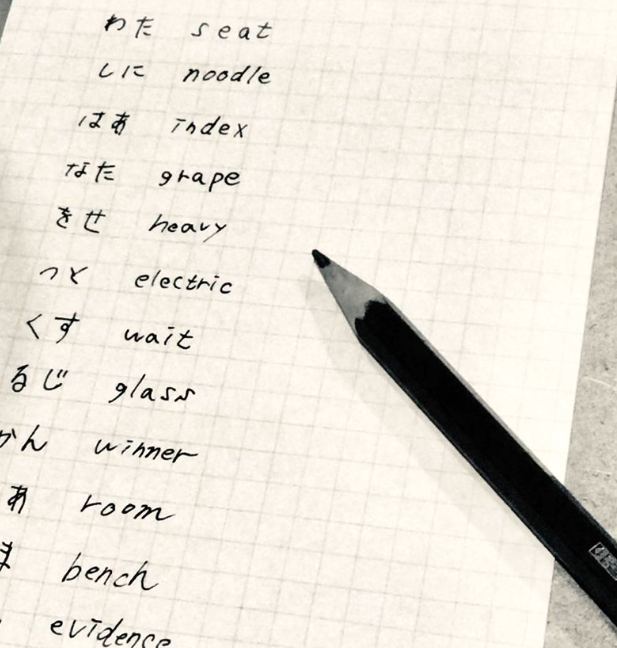 わた seat
しに noodle
はあ index
なた grape
をせ heavy
つと electric
くす wait
るじ glass
かん winner
あ room
bench
evidence